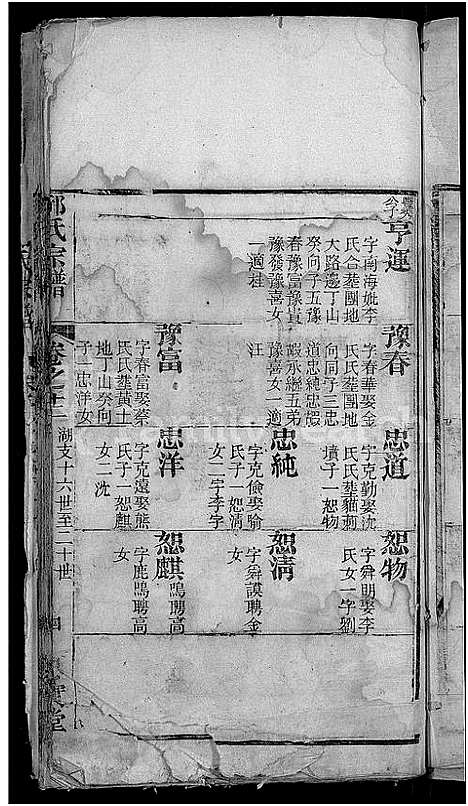 亨運
字南海妣李
氏合塟團地
大路邊丁山
癸向子五豫
春豫富豫貴
豫發豫喜女
一適桂
豫春
字春華娶金
氏氏塟團地
向同子三忠
道忠純忠
嘏承繼五弟
豫喜女一適
汪
豫富
字春富娶蔡
氏氏塟黃土
地丁山癸向
子一忠洋女
忠道
字克勤娶沈
氏氏塟貓
墳子一恕物
忠純
字克儉娶喻
氏子一恕淸
女二一字李
忠洋
字克遠娶熊
氏子一恕麒
女二一字沈
恕物
字舜明娶李
氏女一字劉
恕淸
字舜謨聘金
女
恕麒
字鹿鳴聘高
女
氏宗譜
卷之十二
湖支十六世至二十世
四
堂